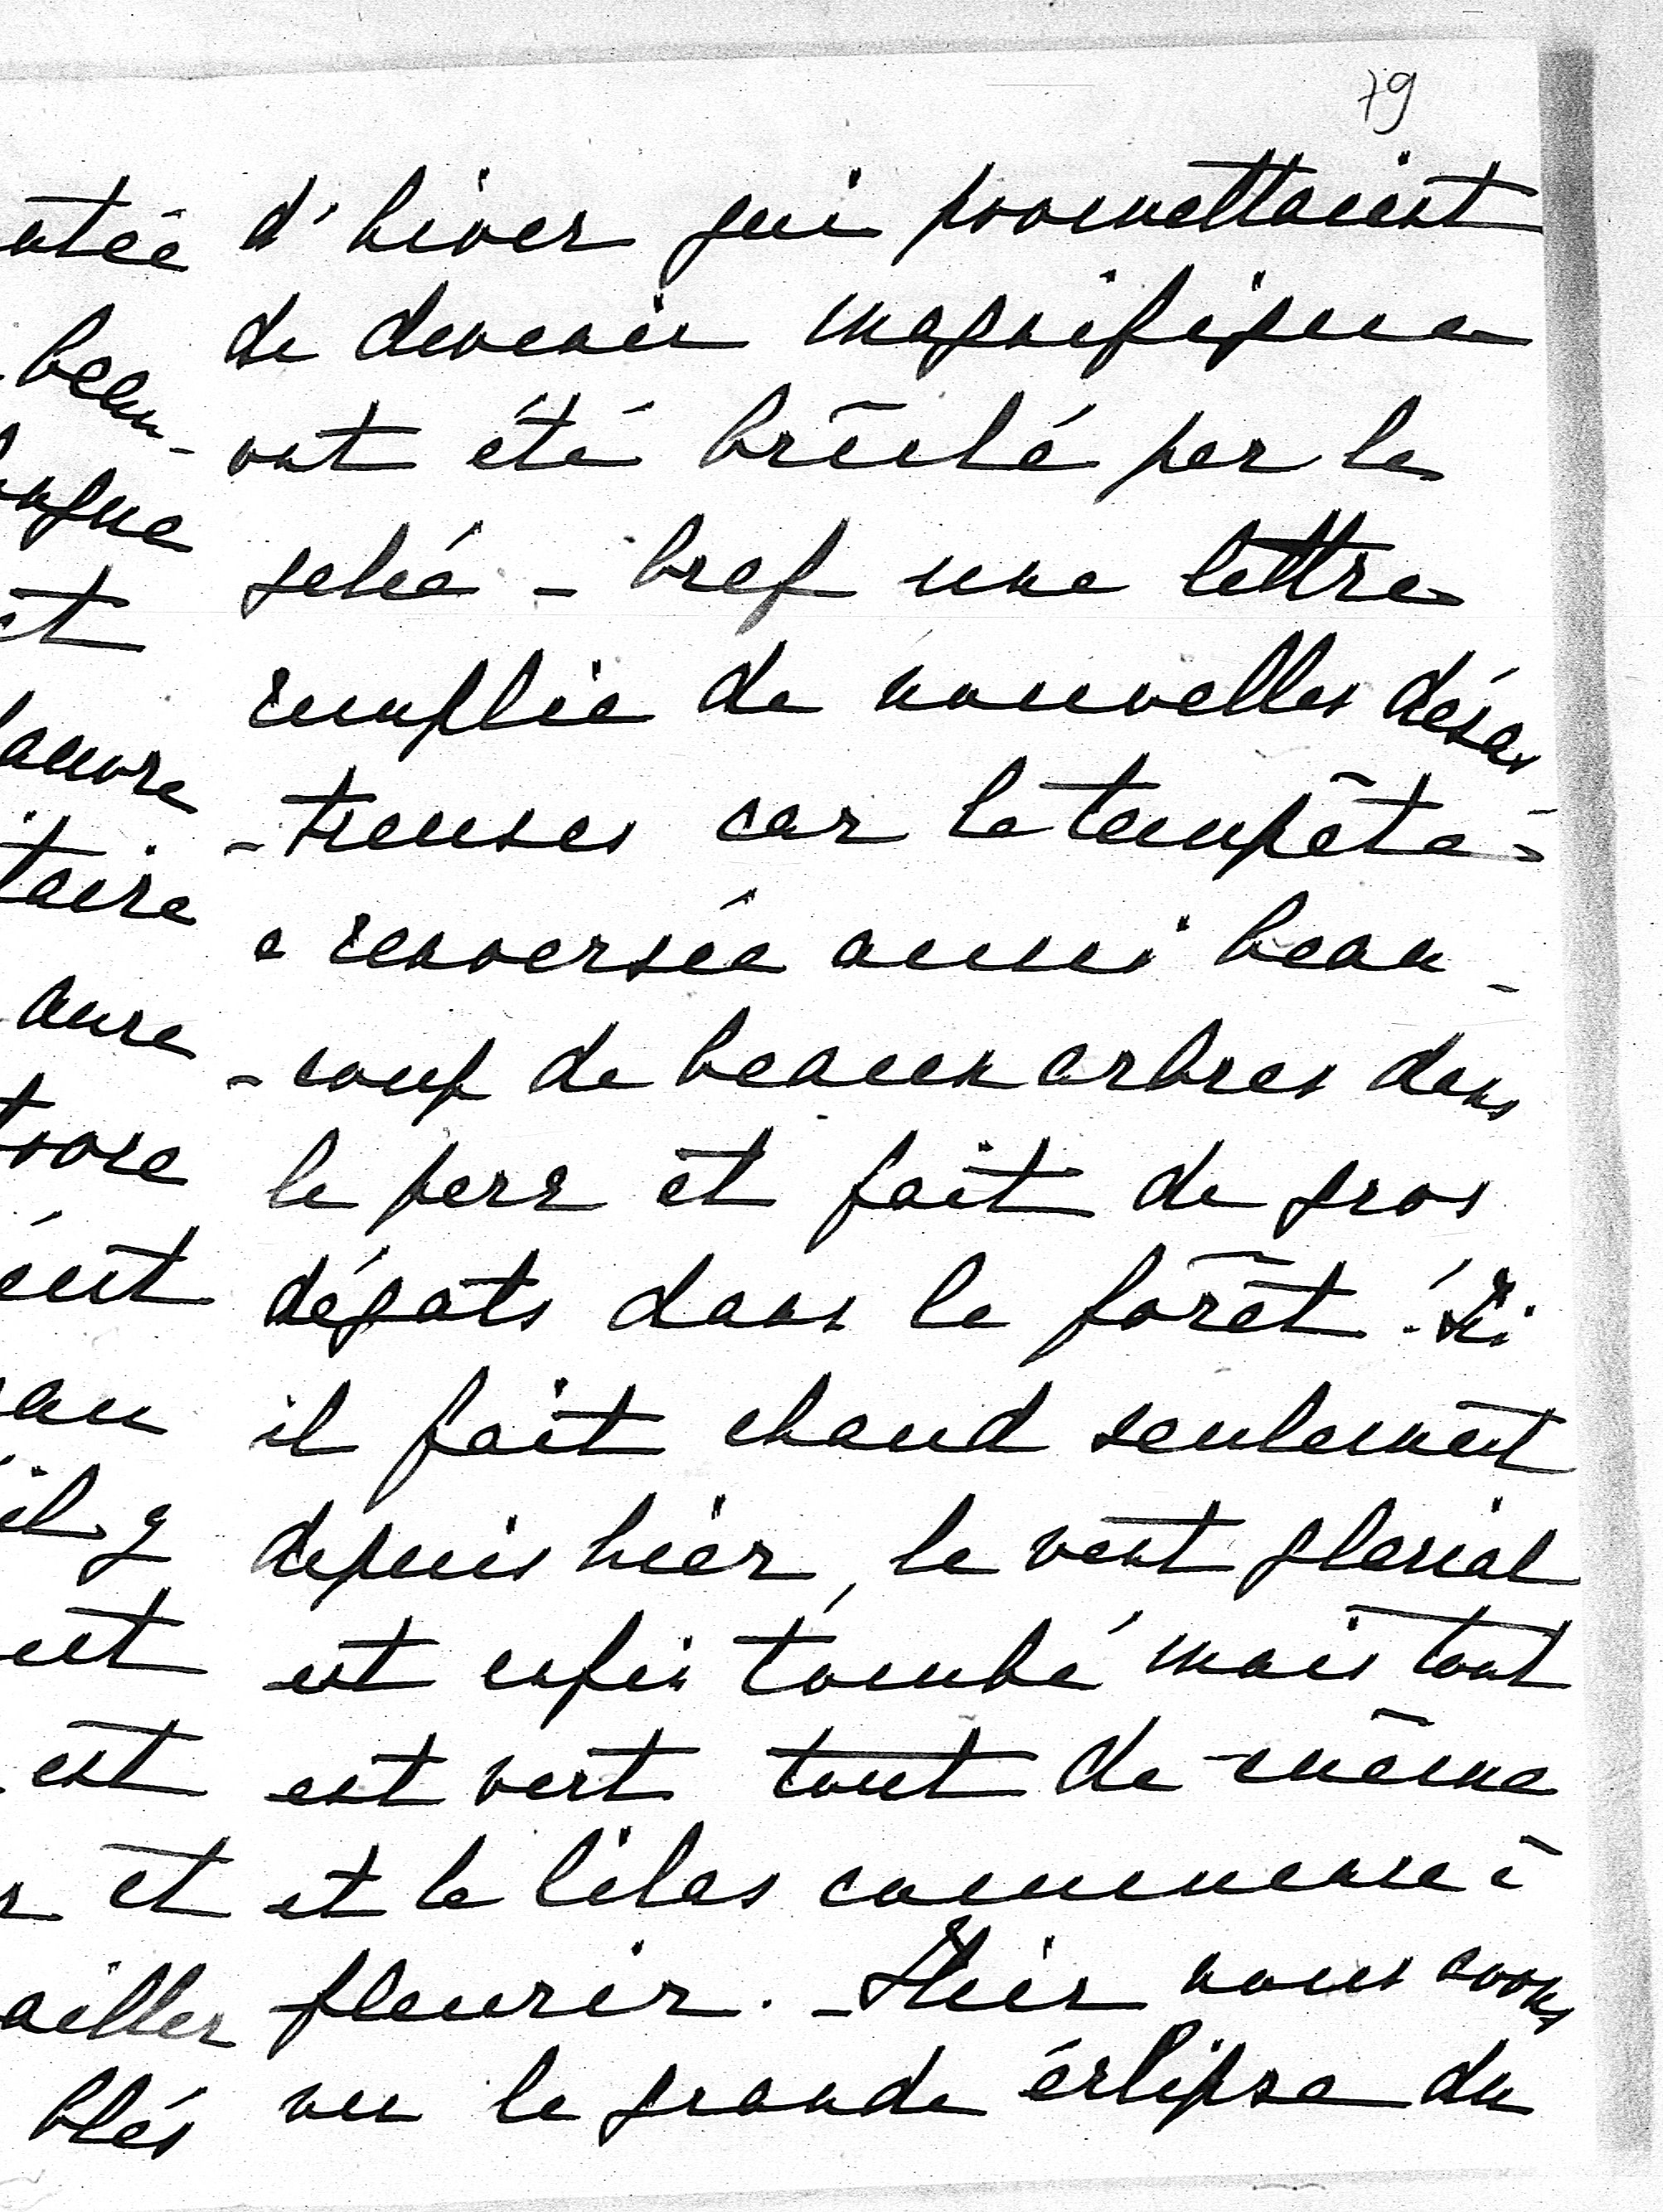 79
d'hiver qui promettaient
de devenir magnifiques
ont été brûlé par la
gelée - bref une lettre
remplie de nouvelles désas
-treuses car la tempête
a renversée aussi beau-
-coup de beaux arbres dans
le parc et fait de gros
dégats dans la forêt! Ici
il fait chaud seulement
depuis hier, le vent glacial
est enfin tombé mais tout
est vert tout de même
et le lilas commence à
fleurir. - Hier nous avons
vu la grande éclipse du
beau-
et
taire
est
il y
est
et
ailler
blés